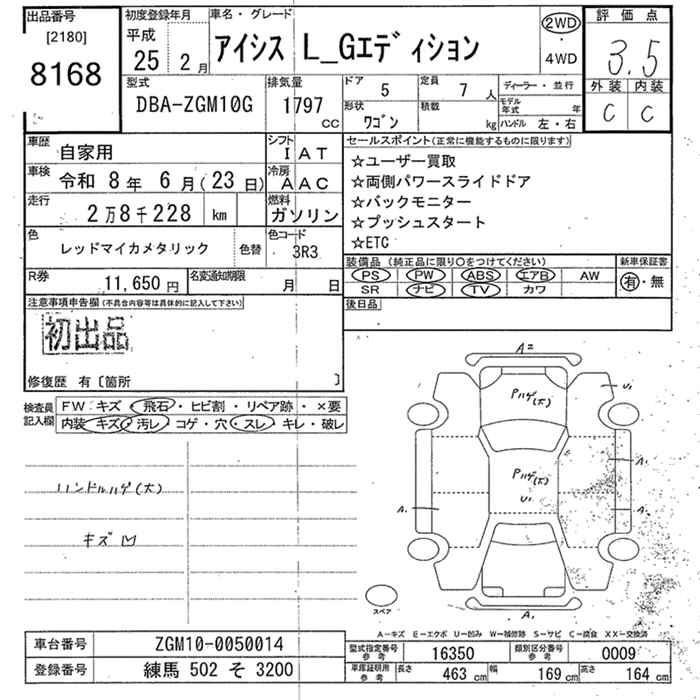 出品番号 初度登録年月 車名・グレード 2WD 評価点
[2180] 平成 アイシス L_Gエディション ・
8168 25 2月 4WD 3.5
型式 排気量 ドア 5 定員 7人 ディーラー・並行 外装 内装
DBA-ZGM10G 1797 cc 形状 ワゴン 積載 kg モデル年式 年 C C
ハンドル 左・右
車歴 自家用 シフト I AT セールスポイント(正常に機能するものに限ります)
車検 令和 8年 6月(23日) 冷房 A AC ☆ユーザー買取
走行 2万8千228 km 燃料 ガソリン ☆両側パワースライドドア
☆バックモニター
色 レッドマイカメタリック 色替 色コード 3R3 ☆プッシュスタート
☆ETC
R券 11,650円 名変通知期限 月 日 装備品(純正品に限り〇をつけてください) 新車保証書
PS PW ABS エアB AW 有・無
SR ナビ TV カワ
注意事項申告欄(不具合内容等は具体的に記入して下さい) 後日品
初出品
修復歴 有〔箇所 〕
検査員 FW キズ・飛石・ヒビ割・リペア跡・×要
記入欄 内装 キズ・汚レ・コゲ・穴・スレ・キレ・破レ
ハンドルハゲ(大)
キズ凹
A2
Pハゲ(大) U1
Pハゲ(大) A1
U1
A1 A1
スペア
A1
A-キズ E-エクボ U-凹み W-補修跡 S-サビ C-腐食 XX-交換済
車台番号 ZGM10-0050014 型式指定番号 参考 16350 類別区分番号 参考 0009
登録番号 練馬 502 そ 3200 車庫証明用 参考 長さ 463 cm 幅 169 cm 高さ 164 cm